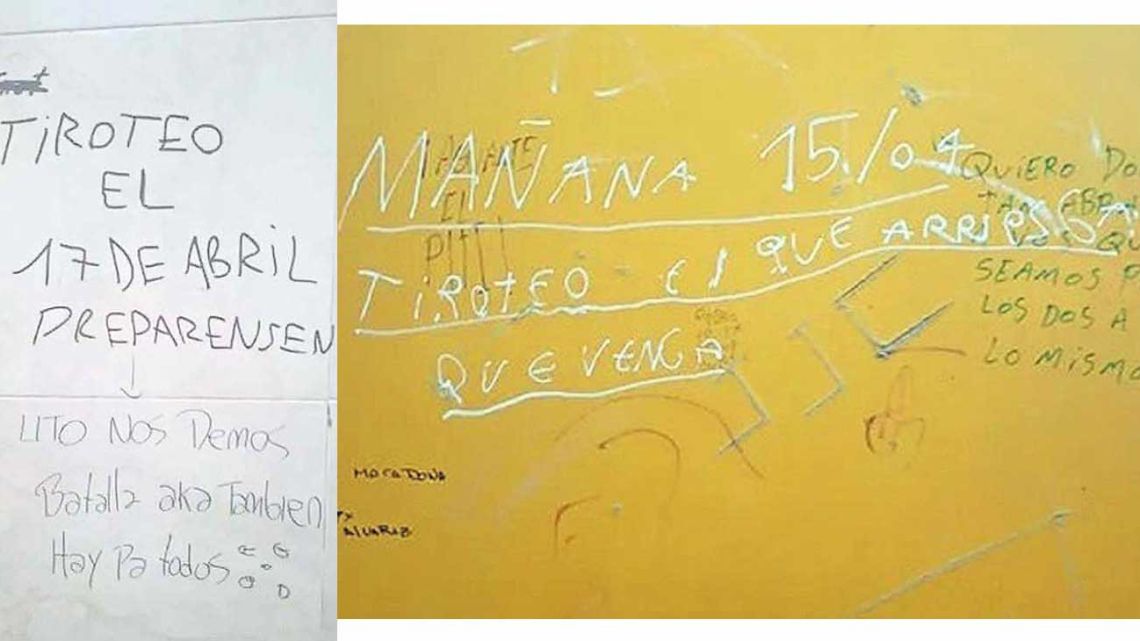 TiROTEO
EL
17 DE ABRiL
PREPARENSEN
LITO NOS Demos
Batalla aka Tambien
Hay Pa todos
MAÑANA 15/04
TiROtEO El QUE ARRIESGA
QUE VENGA
EL
QUIERO
SEAMOS
LOS DOS A
LO MiSMO
MACADONA
ALVARAZ